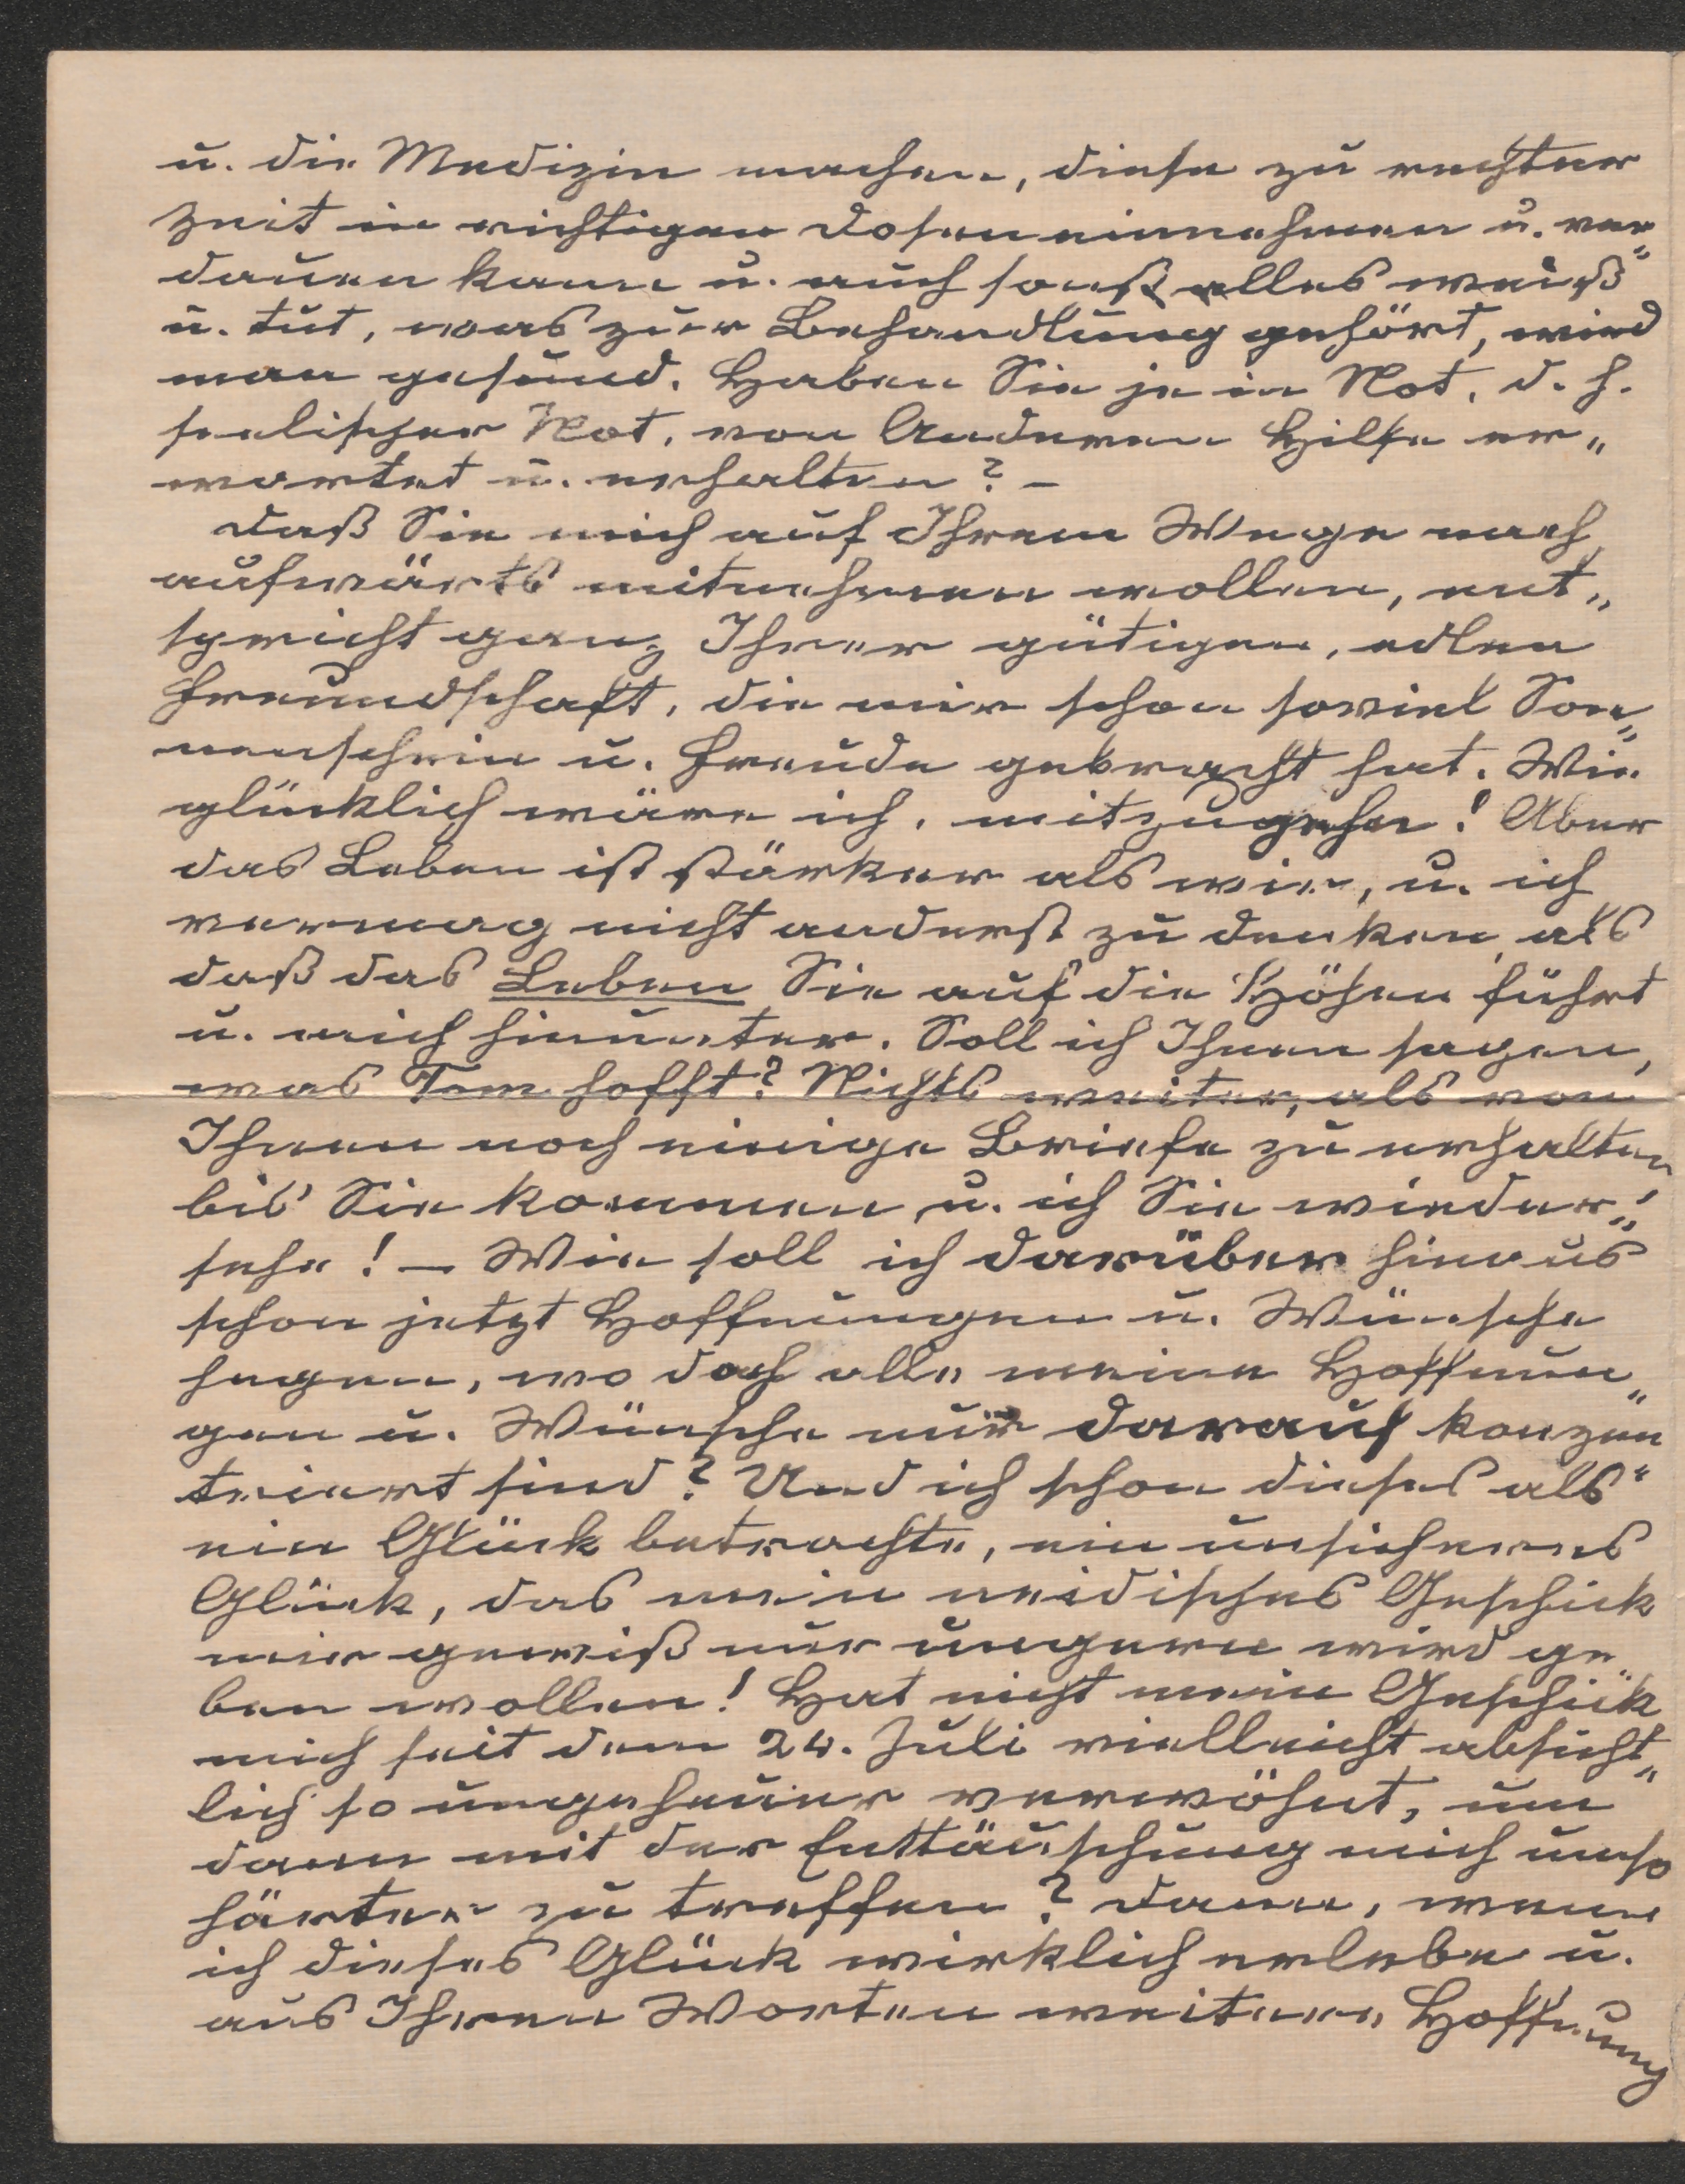 u. die Medizin machen, diese zu rechter
Zeit in richtigen Dosen einnehmen u. ver„
dauen kann u. auch sonst alles weiß
u. tut, was zur Behandlung gehört, wird
man gesund. Haben Sie je in Not, d. h.
seelischer Not, von Anderen Hilfe er„
wartet u. erhalten? –
Daß Sie mich auf Ihrem Wege nach
aufwärts mitnehmen wollen, ent„
spricht ganz Ihrer gütigen, edlen
Freundschaft, die mir schon soviel Son„
nenschein u. Freude gebracht hat. Wie
glücklich wäre ich, mitzugehen! Aber
das Leben ist stärker als wir, u. ich
vermag nicht anderst zu denken, als
daß das Leben Sie auf die Höhen führt
u. mich hinunter. Soll ich Ihnen sagen,
was Tom hofft? Nichts weiter, als von
Ihnen noch einige Briefe zu erhalten,
bis Sie kommen u. ich Sie wieder„
sehe! – Wie soll ich darüber hinaus
schon jetzt Hoffnungen u. Wünsche
hegen, wo doch alle meine Hoffnun„
gen u. Wünsche nur darauf konzen„
triert sind? Und ich schon dieses als
ein Glück betrachte, ein unsicheres
Glück, das mein neidisches Geschick
mir gewiß nur ungern wird ge„
ben wollen! Hat nicht mein Geschick
mich seit dem 24. Juli vielleicht absicht„
lich so ungeheuer verwöhnt, um
dann mit der Enttäuschung mich umso
härter zu treffen? Dann, wenn
ich dieses Glück wirklich erlebe u.
aus Ihren Worten weitere Hoffnung